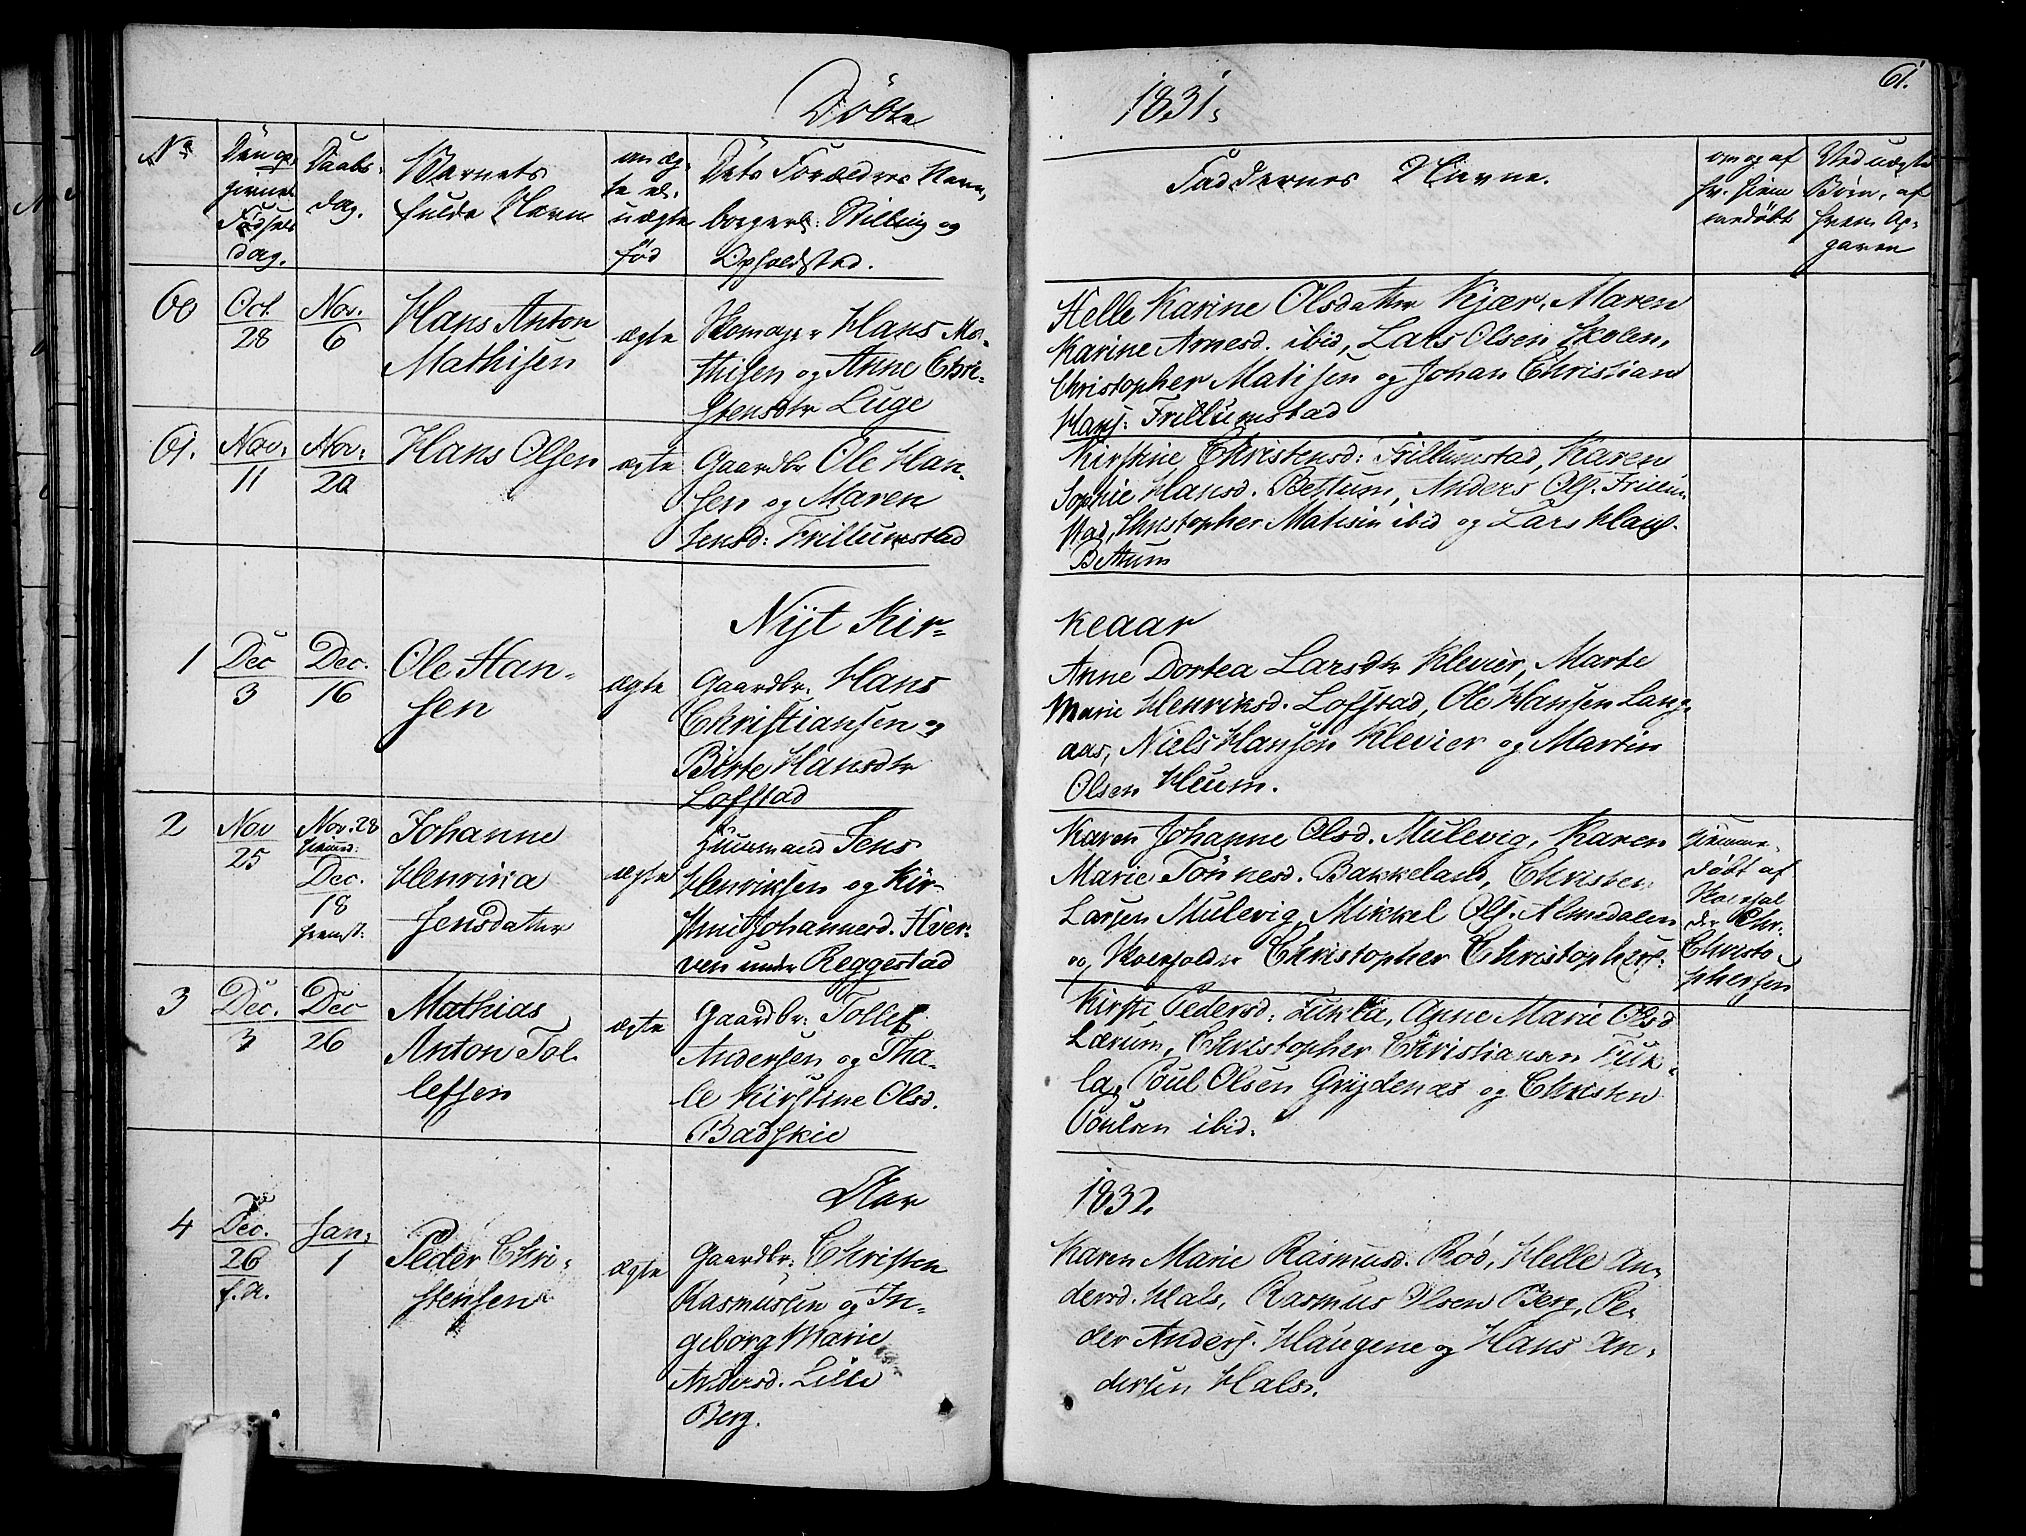 Döbte
1831.
61.
No
Den op-
givne
Födsels
dag.
Daabs-
dag.
Barnets
fulde Navn
om æg-
te el.
uægte
fød
Dets Forældres Navn,
borgerl: Stilling og
Opholdsted.
Faddernes Navne.
om og af
hv. hiem
medøbt
Ved uægte
Børn, af
hvem Op-
gaven
60
Oct.
28
Nov.
6
Hans Anton
Mathisen
ægte
Skomager Hans Ma-
thisen og Anne Chri-
stensdtr Luge
Helle Karine Olsdatter Kjær, Maren
Karine Arnesd. ibid, Lars Olsen Skolen,
Christopher Matisen og Johan Christian
Hans: Frillumstad
61.
Nov.
11
Nov.
20
Hans Olsen
ægte
Gaardbr Ole Han-
sen og Maren
Jensd: Frillumstad
Kirstine Christensd: Frillumstad, Karen
Sophie Hansd. Bettum, Anders Ols. Frillum-
stad, Christopher Matisen ibid og Lars Hans.
Bettum
Nyt Kir-
keaar
1
Dec
3
Dec.
16
Ole Han-
sen
ægte
Gaardbr. Hans
Christiansen og
Birte Hansdtr
Lofstad
Anne Dortea Larsdtr Klevier, Marte
Marie Henriksd. Lofstad, Ole Hansen Lang-
aas, Niels Hansen Klevier og Martin
Olsen Heum.
2
Nov
25
Nov. 28
Dec.
18
fremst.
Johanne
Henrica
Jensdatter
ægte
Huusmand Jens
Henriksen og Kir-
Johannesd. Hver-
ven under Reggestad
Karen Johanne Olsd. Mulevig, Karen
Marie Tönnesd. Bakkeland, Christen
Larsen Mulevig, Mikkel Ols. Almedalen
og Skoeholder Christopher Christophers:
hjemme-
døbt af
Skoehol-
der Chr.
Christo-
phersen
3
Dec.
3
Dec
26
Mathias
Anton Tol-
lefsen
ægte
Gaardbr: Tollef
Andersen og Tha-
le Kirstine Olsd.
Badskie
Kirsti Pedersd: Fukla, Anne Marie Olsd
Lærum, Christopher Christiansen Fuk-
la, Poul Olsen Grydenæs og Christen
Poulsen ibid.
Aar
1832.
4
Dec.
26
f.A.
Jan.
1
Peder Chri-
stensen
ægte
Gaardbr: Christen
Rasmussen og In-
geborg Marie
Andersd. Lille
Berg.
Karen Marie Rasmusd. Rød, Helle An-
dersd. Hals, Rasmus Olsen Berg, Pe-
der Anders. Haugene og Hans An-
dersen Hals.